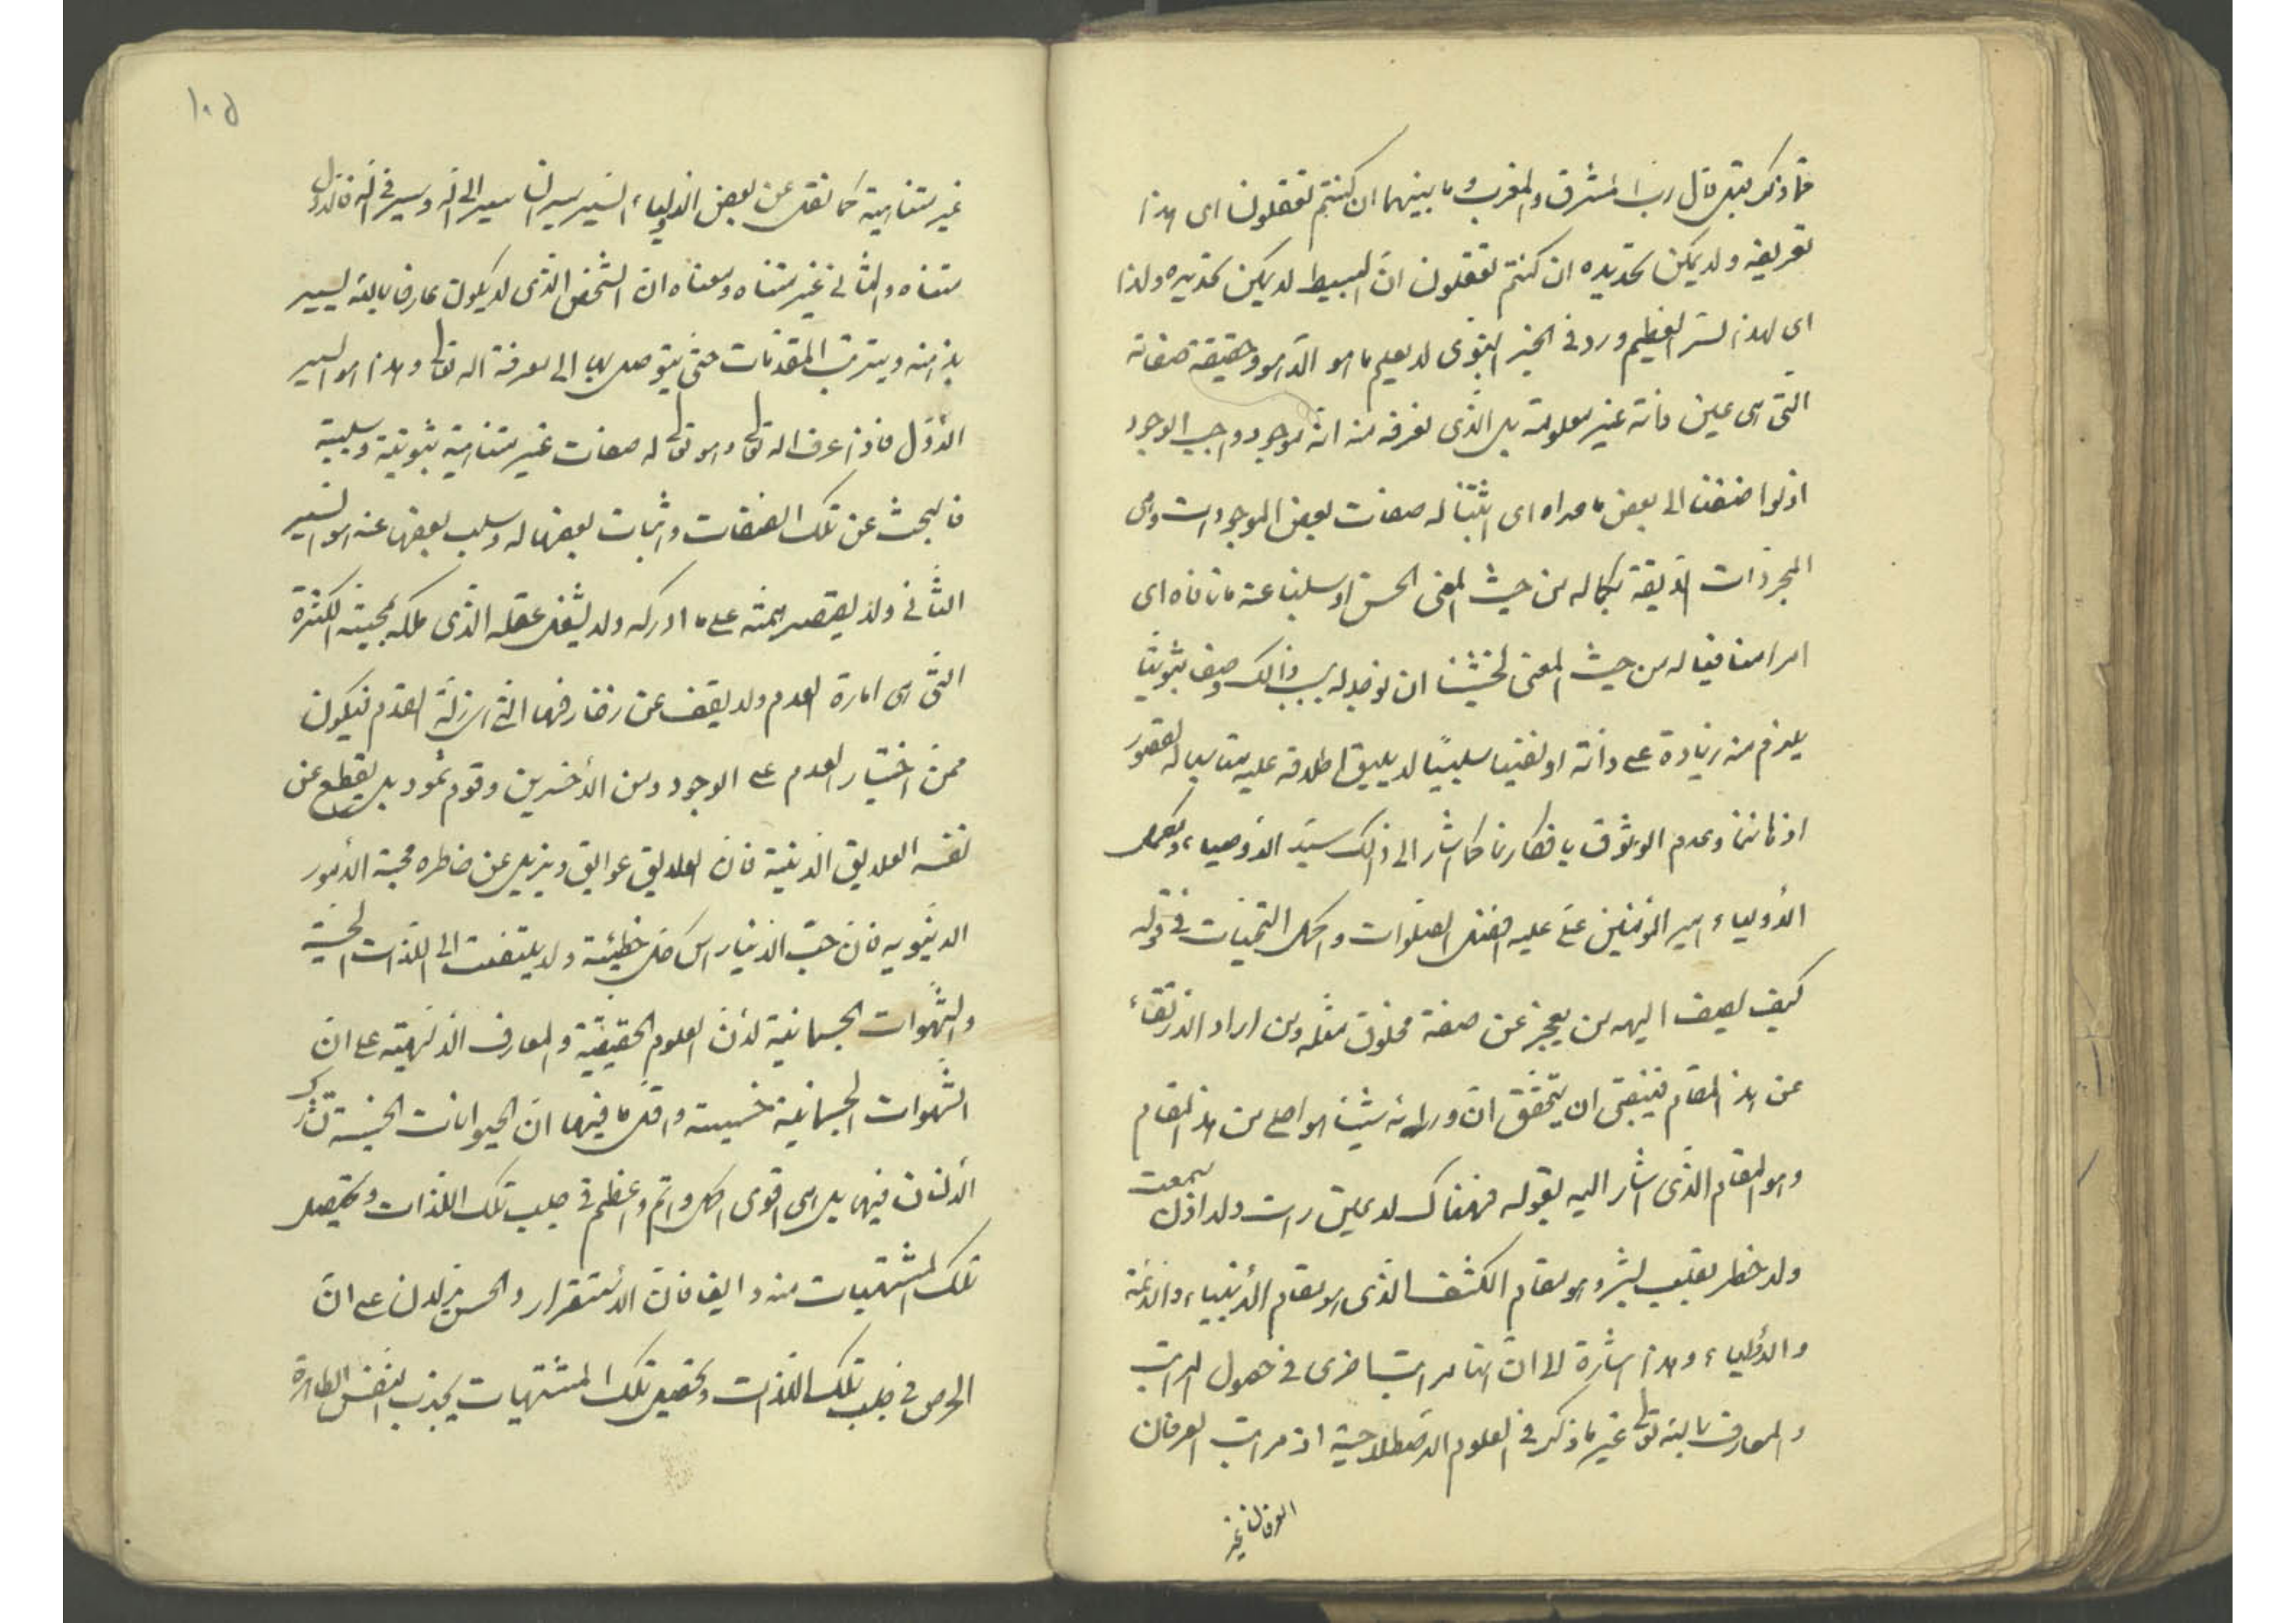 فما ذكر قبل قال رب المشرق والمغرب وما بينهما ان كنتم تعقلون اى هذا
تعريفه ولا يمكن تحديده ان كنتم تعقلون ان البسيط لا يمكن تحديده ولذا
اى لهذا السر العظيم ورد فى الخبر النبوى لا يعلم ما هو الا هو وحقيقة صفاته
التى هى عين ذاته غير معلومة بل الذى نعرفه منه انه موجود واجب الوجود
اذ لو اضفنا الى بعض ما عداه اى اثبتنا له صفات بعض الموجودات وهى
المجردات اللايقة بكماله من حيث المعنى الحسن او سلبنا عنه ما نافاه اى
امرا منافيا له من حيث المعنى لخشينا ان يوجد له بسبب ذالك وصف ثبوتيا
يلزم منه زيادة على ذاته او نفيا سلبيًا لا يليق اطلاقه عليه متاب له لقصور
اذهاننا وعدم الوثوق بافكارنا كما اشار الى ذالك سيد الاوصياء واكمل
الأولياء امير المؤمنين على عليه افضل الصلوات واكمل التحيات فى قوله
كيف يصف الهه من يعجز عن صفة مخلوق مثله ومن اراد الارتقاء
عن هذا المقام فينبغى ان يتحقق ان ورائه شيئا هو اعلى من هذا المقام
وهو المقام الذى اشار اليه بقوله فهناك لا عين رات ولا اذن سمعت
ولا خطر بقلب بشر وهو مقام الكشف الذى هو مقام الأنبياء والائمة
والاولياء وهذا اشارة الى ان لنا مراتب اخرى فى حصول المراتب
والمعارف بالله تعالى غير ما ذكر فى العلوم الاصطلاحية اذ مراتب العرفان
العرفان غير
١٠٥
غير متناهية كما نقل عن بعض الاولياء السير سيران سير الى الله وسير فى الله فالاول
متناه والثانى غير متناه ومعناه ان الشخص الذى لا يكون عارفا بالله يسير
بذهنه ويترتب المقدمات حتى يتوصل بها الى معرفة الله تعالى وهذا هو السير
الاول فاذا عرف الله تعالى وهو تعالى له صفات غير متناهية ثبوتية وسلبية
فالبحث عن تلك الصفات واثبات بعضها له وسلب بعضها عنه هو السير
الثانى ولا يقتصر همته على ما ادركه ولا يشغل عقله الذى ملكه بمحبة الكثرة
التى هى امارة العدم ولا يقف عن زخارفها التى هى زلة القدم فيكون
ممن اختار العدم على الوجود ومن الأخسرين وقوم ثمود بل يقطع عن
نفسه العلايق الدنيّة فان العلايق عوايق ويزيل عن خاطره محبة الأمور
الدنيوية فان حب الدنيا رأس كل خطيئة ولا يلتفت الى اللذات الحسية
والشهوات الجسمانية لأن العلوم الحقيقية والمعارف الالهية على ان
الشهوات الجسمانية خسيسة واقل ما فيها ان الحيوانات الخسيسة تشارك
الأنسان فيها بل هى اقوى واكمل واتم واعظم فى جلب تلك اللذات وتحصيل
تلك المشتهيات منه وايضا فان الأستقرار والحس يدلان على ان
الحرص فى طلب تلك اللذات وتحصيل تلك المشتهيات يجذب النفس الطاهرة